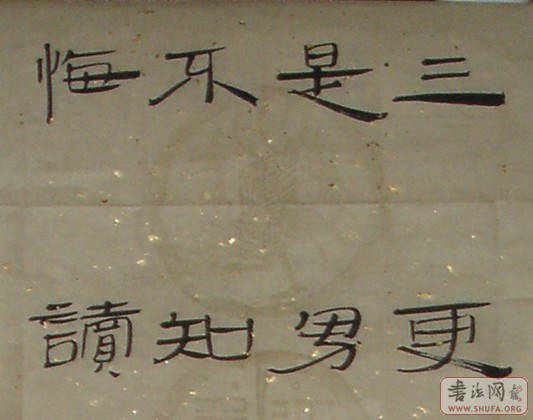 三更
是男
不知
悔讀
书法网
WWW.SHUFA.ORG